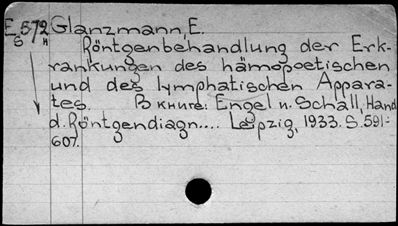 E 572 Glanzmann, E.
S н
Röntgenbehandlung der Erk-
rankungen des hämopoetischen
und des lymphatischen Appara-
tes. В книге: Engel u. Schall, Hand
d. Röntgendiagn.... Leipzig, 1933. S. 591-
607.